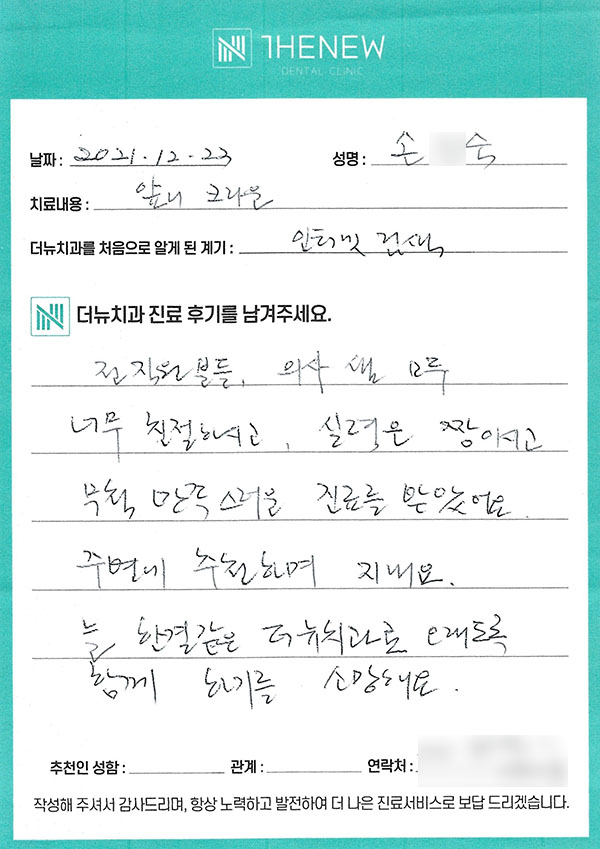 THENEW
DENTAL CLINIC
날짜 : 2021.12.23 성명 : 손 숙
치료내용 : 앞니 크라운
더뉴치과를 처음으로 알게 된 계기 : 인터넷 검색
더뉴치과 진료 후기를 남겨주세요.
전 직원분들, 의사 샘 모두
너무 친절하시고, 실력은 짱이시고
무척 만족스러운 진료를 받았어요.
주변에 추천하며 지내요.
늘 한결같은 더뉴치과로 오래도록
함께 하기를 소망해요.
추천인 성함 : 관계 : 연락처 :
작성해 주셔서 감사드리며, 항상 노력하고 발전하여 더 나은 진료서비스로 보답 드리겠습니다.